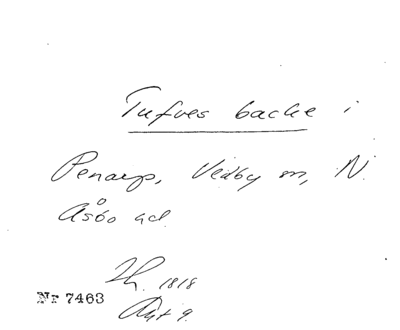 Tufves backe i
Penarp, Vedby sn, N.
Åsbo hd.
1818
Nr 7463
Akt 9.